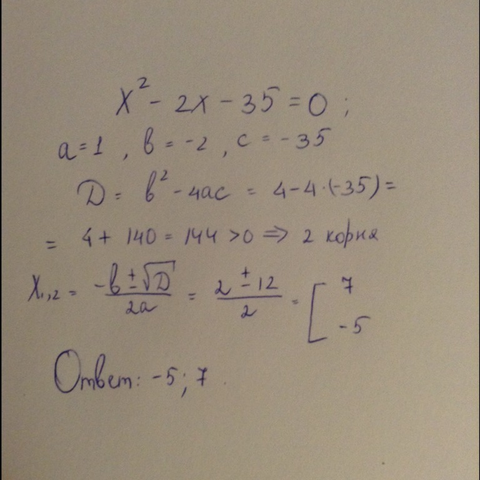 x² - 2x - 35 = 0 ;
a = 1 , b = -2 , c = -35
D = b² - 4ac = 4 - 4 · (-35) =
= 4 + 140 = 144 > 0 ⇒ 2 корня
x₁,₂ = (-b ± √D) / 2a = (2 ± 12) / 2 = [ 7 -5
Ответ: -5 ; 7 .